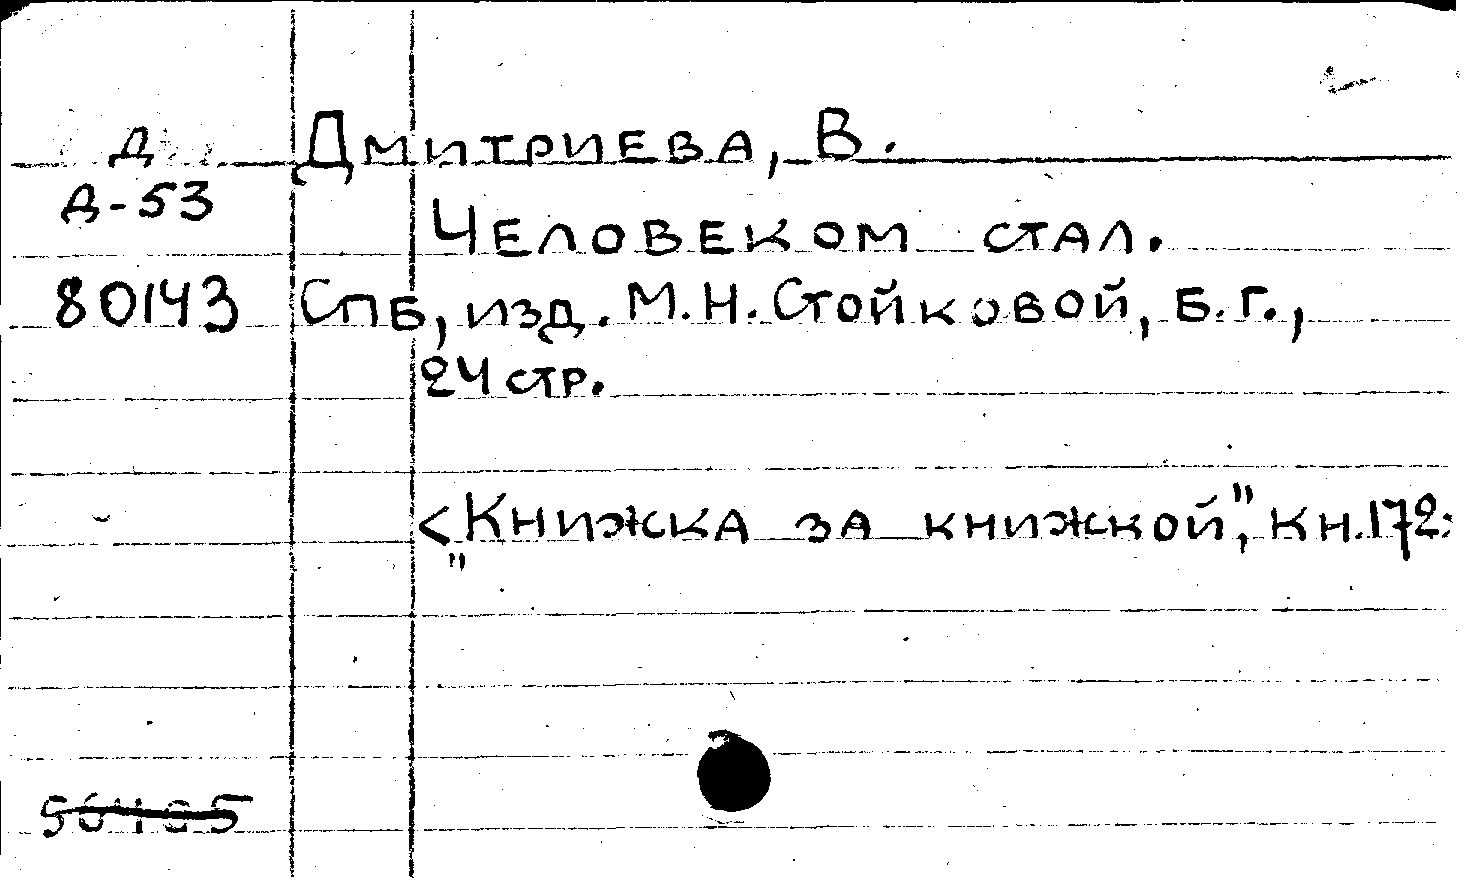 Д Дмитриева, В.
Д-53
Человеком стал.
80143 СПБ, изд. М.Н.Стойковой, Б.Г.,
24 стр.
<"Книжка за книжкой", кн.172>